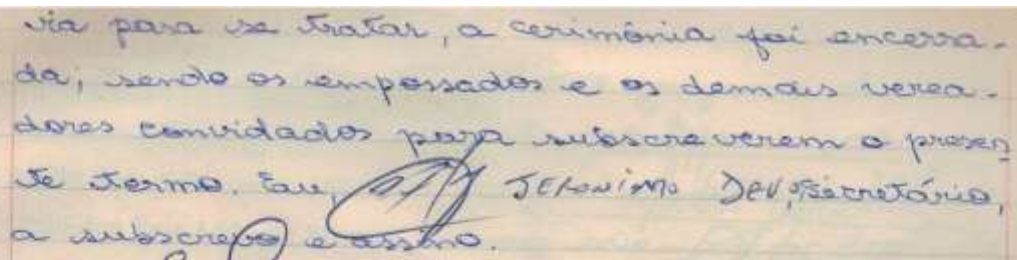 via para se tratar, a cerimônia foi encerra-
da, sendo os empossados e os demais verea-
dores convidados para subscreverem o presen
te termo. Eu, JERONIMO secretário,
a subscrevo e assino.